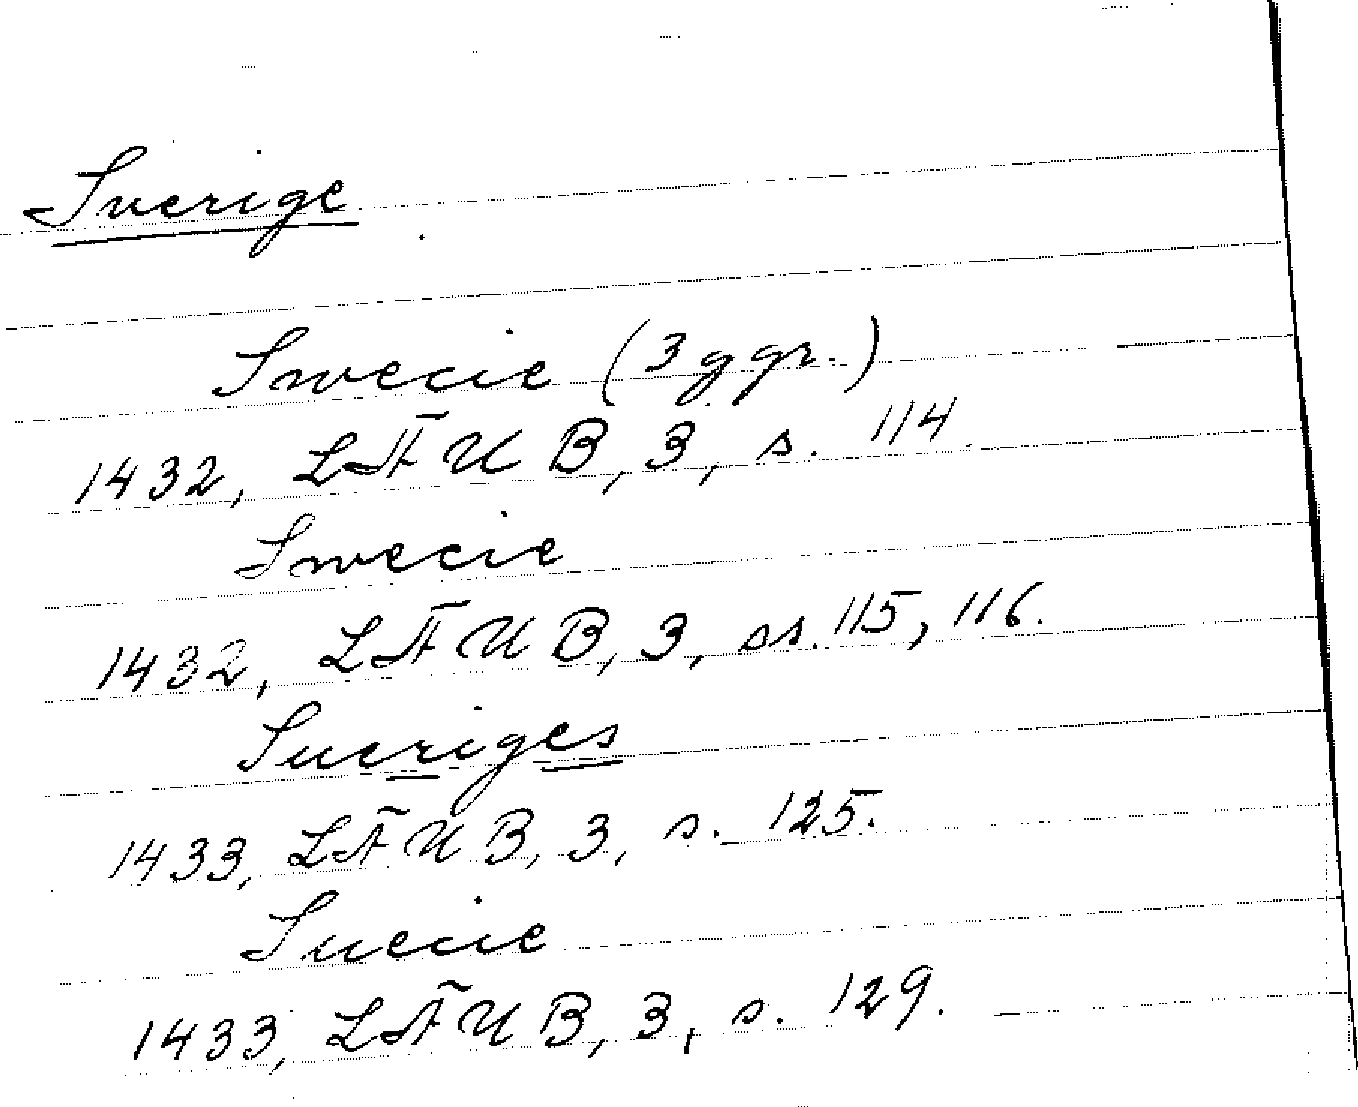 Sverige
Swecie (3 ggr.)
1432, LFUB, 3, s. 114.
Swecie
1432, LFUB, 3, ss. 115, 116.
Sueriges
1433, LFUB, 3, s. 125.
Suecie
1433, LFUB, 3, s. 129.